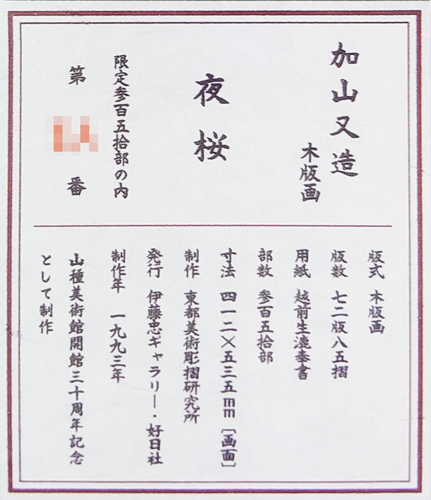 加山又造
木版画
夜桜
限定参百五拾部の内
第 番
版式 木版画
版数 七二版八五摺
用紙 越前生漉奉書
部数 参百五拾部
寸法 四一二×五三五mm［画面］
制作 東都美術彫摺研究所
発行 伊藤忠ギャラリー・好日社
制作年 一九九三年
山種美術館開館三十周年記念
として制作